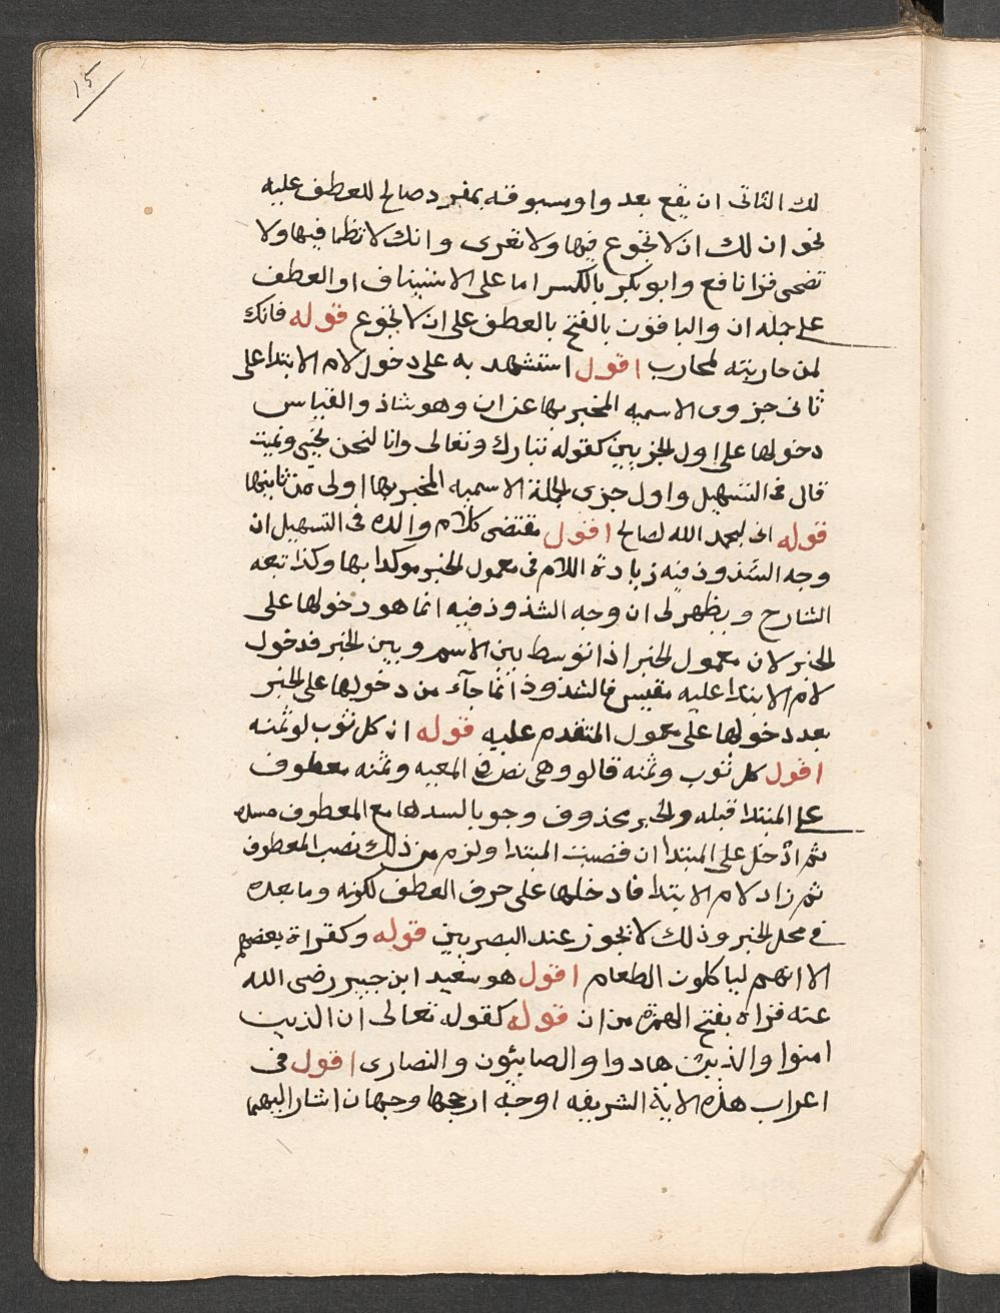 ١٥
لك الثاني ان يقع بعد واو مسبوقه بمفرد صالح للعطف عليه
نحو ان لك ان لا تجوع فيها ولا تعرى وانك لا تظما فيها ولا
تضحى فقرا نافع وابو بكر بالكسر اما على الاستيناف او العطف
على جمله ان والباقون بالفتح بالعطف على ان لا تجوع قوله فانك
لمن حاربته لمحارب اقول استشهد به على دخول لام الابتدا على
ثانى جزوى الاسميه المخبر بها عن ان وهو شاذ والقياس
دخولها على اول الجزيين كقوله تبارك وتعالى وانا لنحن نحيي ونميت
قال فى التسهيل واول جزى الجملة الاسميه المخبر بها اولى من ثانيها
قوله انى لبحمد الله لصالح اقول مقتضى كلام والده فى التسهيل ان
وجه الشذوذ فيه زيادة اللام فى معمول الخبر موكدا بها وكذا تبعه
الشارح ويظهر لى ان وجه الشذوذ فيه انما هو دخولها على
الخبر لان معمول الخبر اذا توسط بين الاسم وبين الخبر فدخول
لام الابتدا عليه مقيس فالشذوذ انما جآء من دخولها على الخبر
بعد دخولها على معمول المتقدم عليه قوله ان كل ثوب لو ثمنه
اقول كل ثوب وثمنه قالوو هى نص فى المعيه وثمنه معطوف
على المبتدا قبله والخبر محذوف وجوبا لسدها مع المعطوف مسده
ثم ادخل على المبتدا ان فنصبت المبتدا ولزم من ذلك نصب المعطوف
ثم زاد لام الابتدا فادخلها على حرف العطف لكونه وما بعده
في محل الخبر وذلك لا يجوز عند البصريين قوله وكقراة بعضهم
الا انهم لياكلون الطعام اقول هو سعيد ابن جبير رضى الله
عنه قراة بفتح الهمزة من ان قوله كقوله تعالى ان الذين
امنوا والذين هادوا والصابئون والنصارى اقول فى
اعراب هذه الاية الشريفه اوجه ارجحها وجهان اشار اليهما